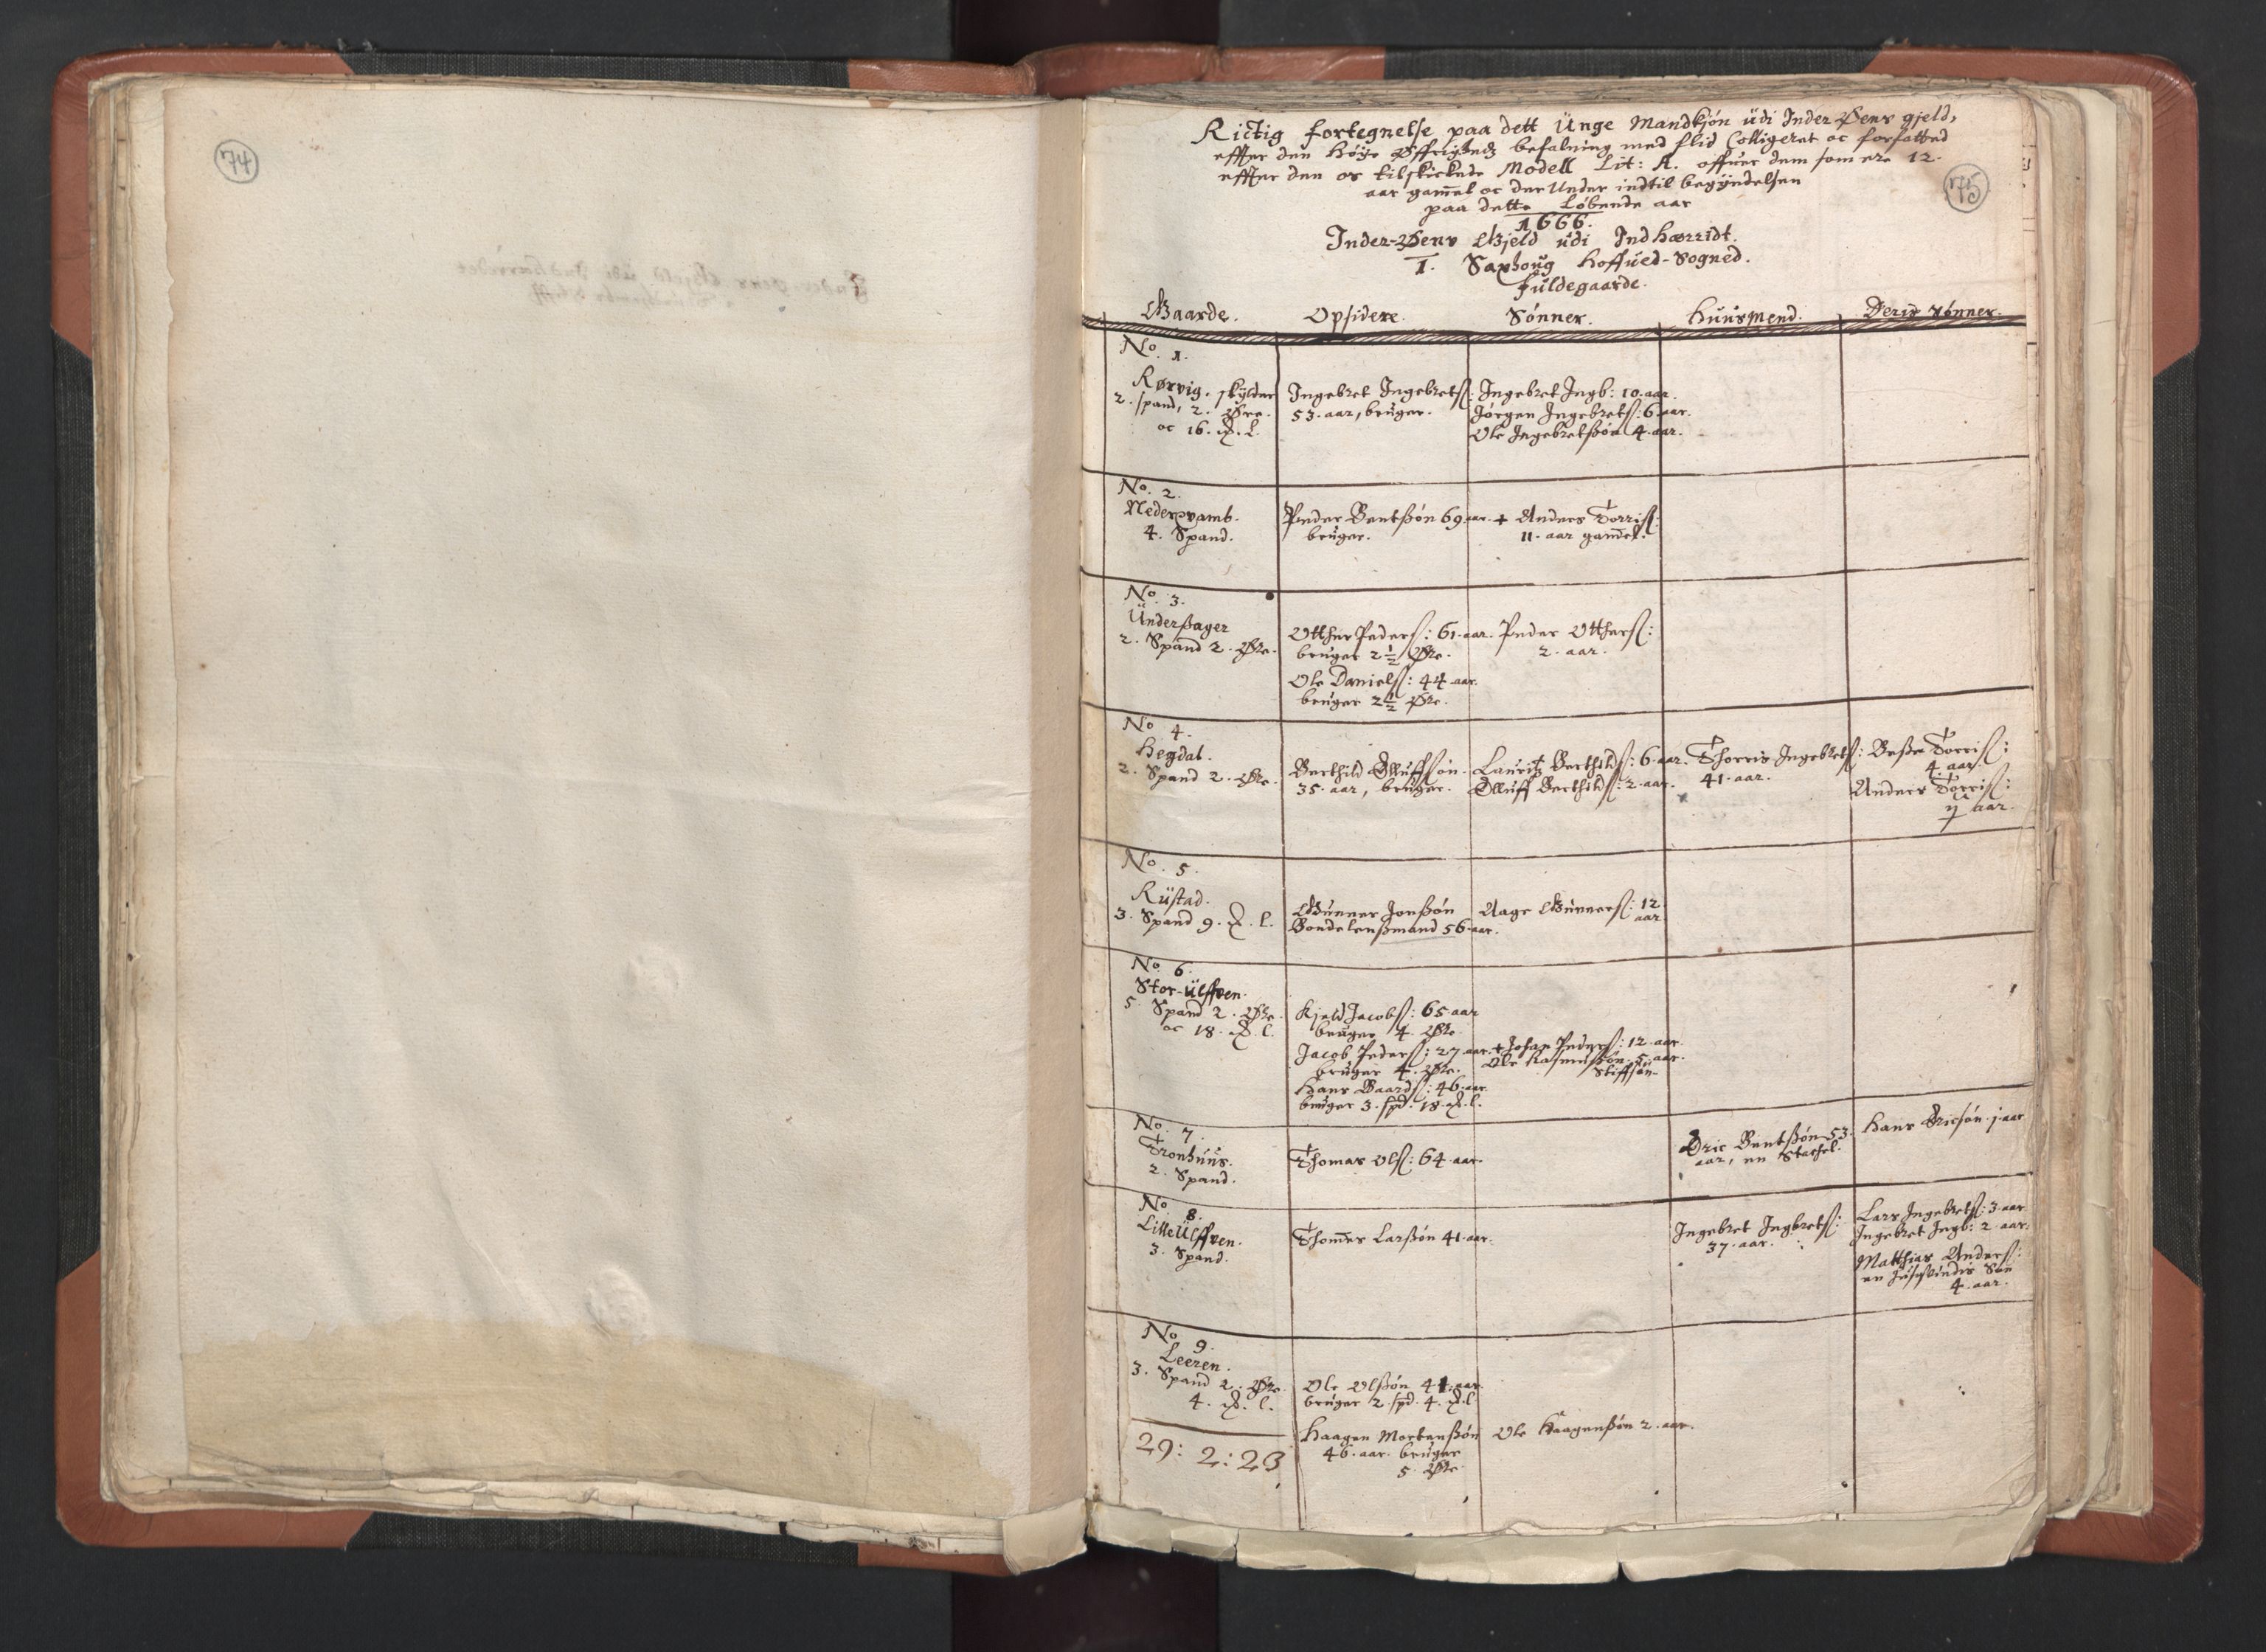 74
75
Rictig fortegnelse paa dett Ünge Mandkjón üdi Inder Øens gjeld,
effter den Høye Øffrigheds befalning med flid Colligeret oc forfatted
effter den os tilskickede Modell Lit: A. offuer dem som ere 12.
aar gam̅el oc der Under indtil begÿndelsen
paa dette Løbende aar
1666.
Inder-Øens Gjeld üdi Indhærridt.
1. Saxhoug Hoffued-Sogned.
füldegaarde.
Gaarde. Opsidere. Sónner. Huusmend. Deris sónner.
No. 1.
Rørvig. skÿlder
2. spand, 2. Øre.
oc 16. l.
Ingebret Ingebrets:
53. aar, brüger.
Ingebret Ingb: 10. aar.
Jórgen Ingebrets: 6 aar.
Ole Ingebretßón 4. aar.
No. 2.
Nedervamb.
4. Spand.
Peder Bentßón 69. aar.
brüger.
+ Anders Torris:
11. aar gam̅el.
No. 3.
Ünderßager
2. Spand 2. Øre.
Otther Peders: 61. aar.
brüger 2½ Øre.
Ole Daniels: 44 aar.
brüger 2½ Øre.
Peder Otthers:
2. aar.
No. 4.
Hegdal.
2. Spand 2. Øre.
Berthild Olluffsón.
35. aar, brüger.
Lauritz Berthilds: 6. aar.
Olluff Berthilds: 2. aar.
Thorris Ingebrets:
41. aar.
Beßer Torris:
4. aar.
Anders Torris:
aar.
No. 5.
Rüstad.
3. Spand 9. l.
Gunner Jonßón
Bondelensmand 56. aar.
Aage Gunners: 12
aar
No. 6.
Stor-Ülffven.
5. Spand 2. Øre.
oc 18. l.
Kjeld Jacobs: 65 aar
brüger 4. Øre.
Jacob Peders: 27 aar.
brüger 4. Øre.
Hans Baards: 46. aar
brüger 3. spd. 18. l.
+ Johan Peders: 12. aar.
Ole Rasmusßón. 5. aar.
Stiffsón
No. 7.
Tronhüüs.
2. Spand.
Thomas Ols: 64. aar.
Eric Bentßón 53.
aar, en Stachel.
Hans Ericsón. j. aar
No. 8.
Lille Ülffven.
3. Spand.
Thom̅es Larßón 41. aar.
Ingebret Ingbrets:
37. aar.
Lars Ingebrets: 3. aar
Ingebret Ingb: 2. aar.
Matthias Anders:
en Són
4. aar.
No. 9.
Leeren.
3. Spand 2. Øre.
4. l.
Ole Olßón 41. aar.
brüger 2. spd. 4. l.
Haagen Mortenßón
46. aar. brüger
5. Øre
Ole Haagenßón 2. aar.
29: 2: 23